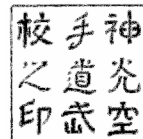 神炎空
手道武
校之印